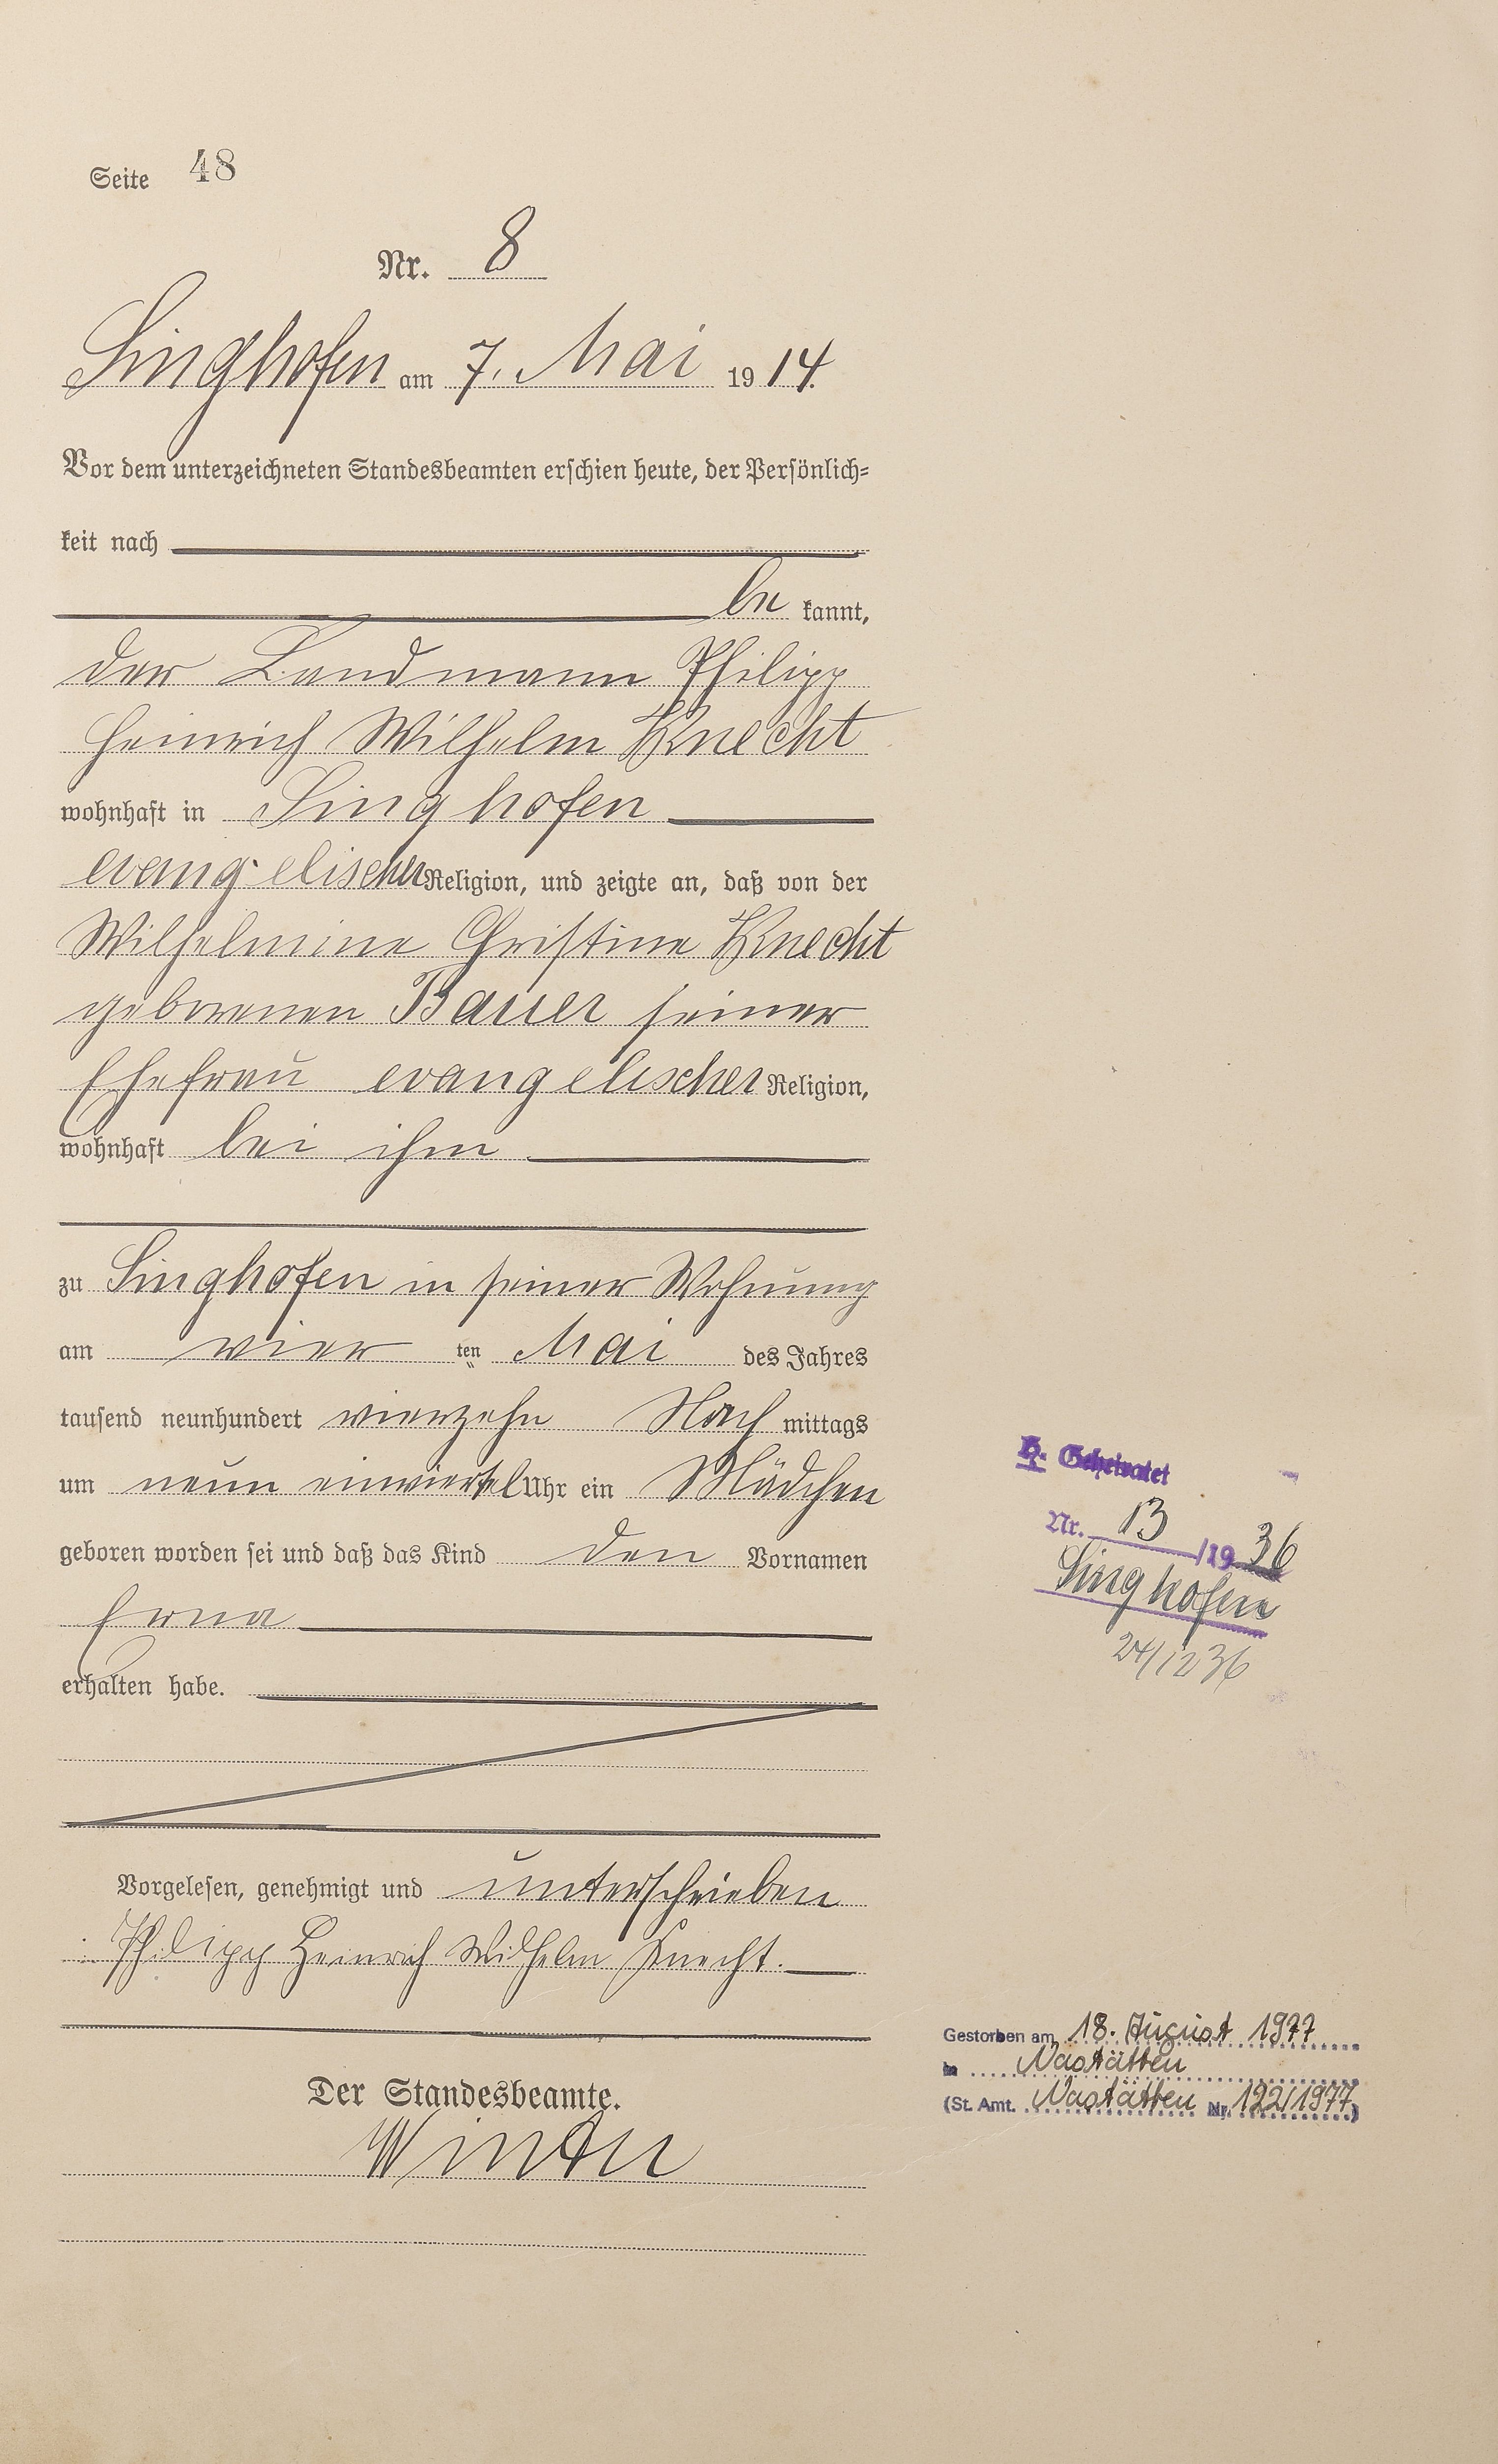 Seite 48
Nr. 8
Singhofen am 7. Mai 1914.
Vor dem unterzeichneten Standesbeamten erschien heute, der Persönlich-
keit nach
be kannt,
der Landmann Philipp
Heinrich Wilhelm Knecht
wohnhaft in Singhofen
evangelischer Religion, und zeigte an, daß von der
Wilhelmine Christine Knecht
geborenen Bauer seiner
Ehefrau evangelischer Religion,
wohnhaft bei ihm
zu Singhofen in seiner Wohnung
am vier ten Mai des Jahres
tausend neunhundert vierzehn Nach mittags
um neun einviertel Uhr ein Mädchen
geboren worden sei und daß das Kind den Vornamen
Erna
erhalten habe.
Vorgelesen, genehmigt und unterschrieben
Philipp Heinrich Wilhelm Knecht.
Der Standesbeamte.
Winter
Geheiratet
Nr. 13 /1936
Singhofen
24/12 36
Gestorben am 18. August 1977
in Nastätten
(St. Amt. Nastätten Nr. 122/1977)